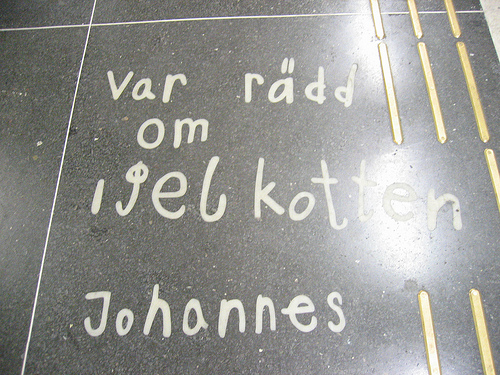 var rädd
om
igel kotten
Johannes